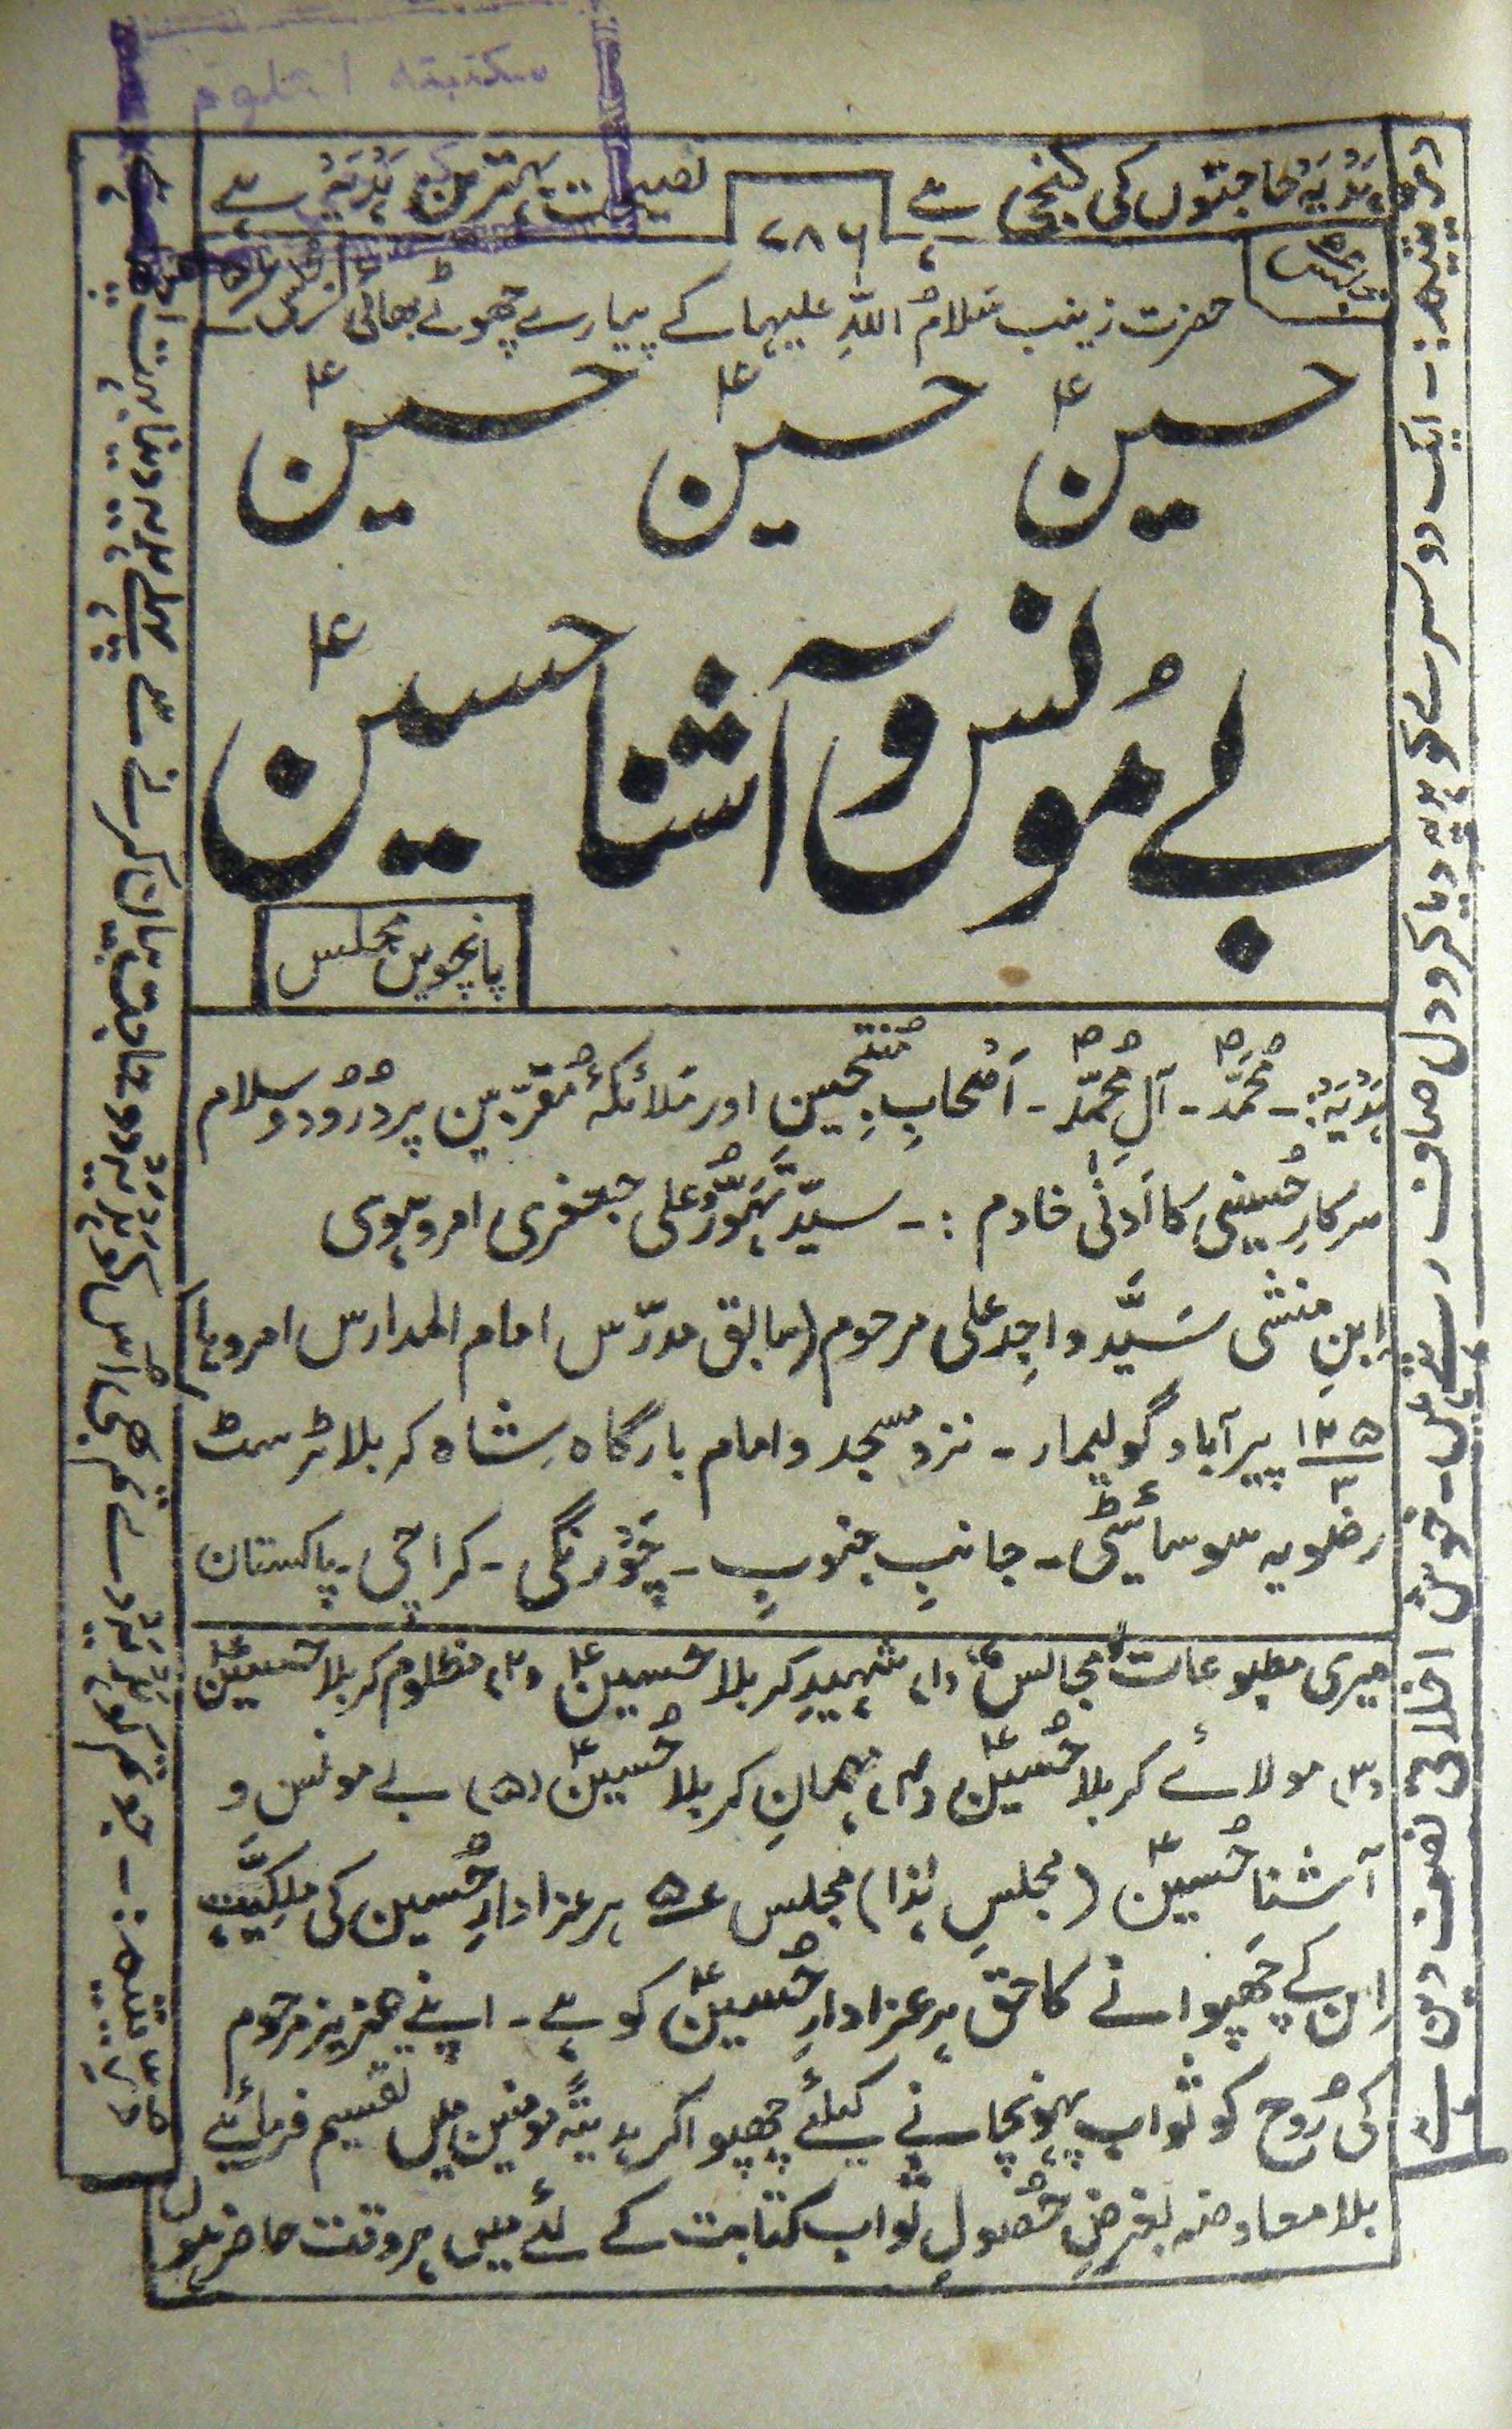 مکتبۃ العلوم
ہَدْیَہ حاجتوں کی کنجی ہے
۷۸۶
نصیحت بہترین ہَدْیَہ ہے
حضرت زینب سَلامُ اللہِ علیہا کے پیارے چھوٹے بھائی
حسینؑ حسینؑ حسینؑ
بے مُونس و آشنا حسینؑ
پانچویں مجلس
ہَدْیَہ:۔ مُحَمَّدؐ ۔ آلِ مُحَمَّدؐ ۔ اَصْحابِ مُنْتَجِبین اور مَلائکۂ مُقَرَّبین پر دُرُود و سلام
سرکارِ حُسینی کا اَدنیٰ خادم :۔ سیّد تَہَوُّر علی جعفری امروہوی
ابنِ منشی سَیَّد واجِد علی مرحوم (سابق مدرّس امام المدارس امروہا)
۱۳۵/۳ پیر آباد گولیمار ۔ نزد مسجد و امام بارگاہِ شاہ کربلا ٹرسٹ
رضویہ سوسائٹی ۔ جانبِ جنوب ۔ چَوْرنگی ۔ کراچی ۔ پاکستان
میری مطبوعات مجالس (۱) شہیدِ کربلا حسینؑ (۲) مظلوم کربلا حسینؑ
(۳) مولائے کربلا حُسینؑ (۴) مہمانِ کربلا حُسینؑ (۵) بے مونس و
آشنا حُسینؑ (مجلسِ ہٰذا) مجلس ؏۵ ہر عزادارِ حُسین کی ملکِیَّت
اِن کے چَھپوانے کا حق ہر عزادارِ حُسینؑ کو ہے ۔ اپنے عزیز مرحوم
کی رُوح کو ثواب پہونچانے کیلئے چھپوا کر ہدیتًہ مومنین میں تقسیم فرمائیے
بلا معاوضہ بغرضِ حُصولِ ثواب کتابت کے لئے میں ہر وقت حاضر ہوں
ایک دوسرے کو ہدیہ دیا کرو دل صاف رہتے ہیں ۔ خوش اخلاقی نصف دین ہے